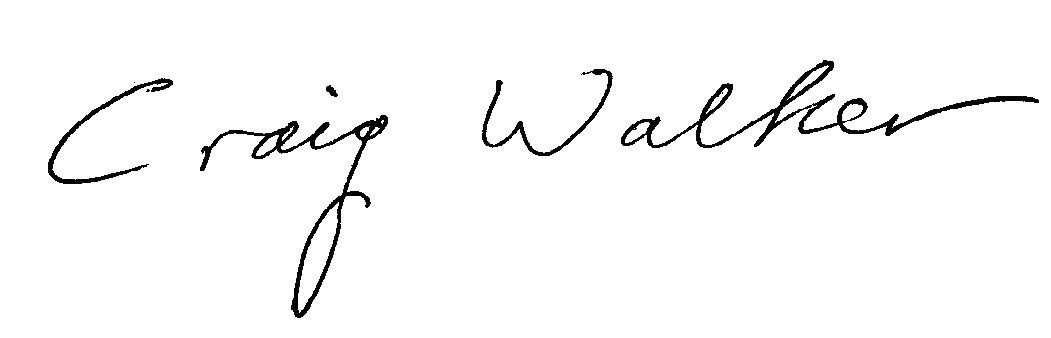 Craig Walker